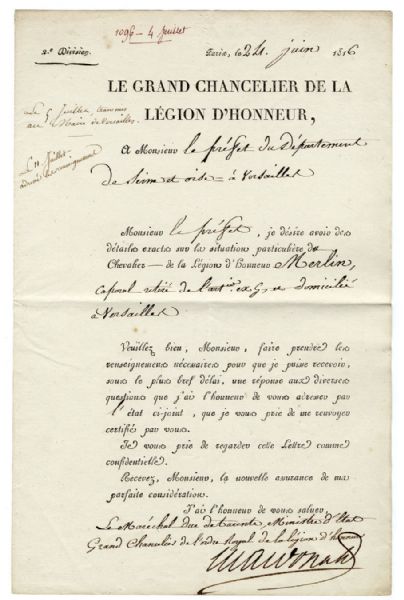 1096 — 4 Juillet
2.e Division.
Paris, le 24 juin 1816
LE GRAND CHANCELIER DE LA
LÉGION D'HONNEUR,
Le 5 Juillet
au Maire de Versailles.
Le 11 Juillet
A Monsieur le préfet du Département
De Seine et oise = à Versailles
Monsieur le préfet, je désire avoir des
détails exacts sur la situation particulière du
Chevalier — de la Légion d'honneur Merlin,
caporal retiré de l'art.ie ex G.de domicilié
à Versailles
Veuillez bien, Monsieur, faire prendre les
renseignemens nécessaires pour que je puisse recevoir,
sous le plus bref délai, une réponse aux diverses
questions que j'ai l'honneur de vous adresser par
l'état ci-joint, que je vous prie de me renvoyer
certifié par vous.
Je vous prie de regarder cette Lettre comme
confidentielle.
Recevez, Monsieur, la nouvelle assurance de ma
parfaite considération.
J'ai l'honneur de vous saluer,
Le Maréchal duc de tarente, Ministre d'Etat
Grand Chancelier de l'ordre Royal de la légion d'honneur
Macdonald